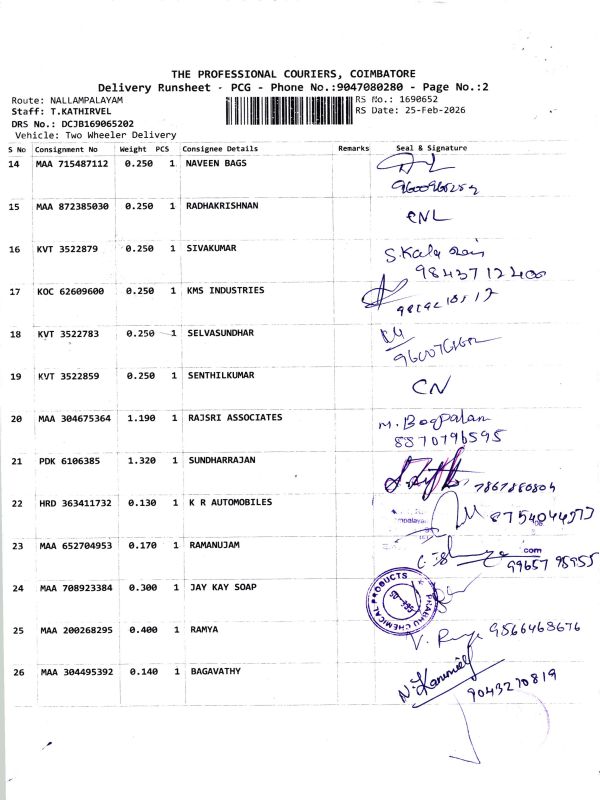 THE PROFESSIONAL COURIERS, COIMBATORE
Delivery Runsheet - PCG - Phone No.:9047080280 - Page No.:2
Route: NALLAMPALAYAM RS No.: 1690652
Staff: T.KATHIRVEL RS Date: 25-Feb-2026
DRS No.: DCJB169065202
Vehicle: Two Wheeler Delivery
S No Consignment No Weight PCS Consignee Details Remarks Seal & Signature
14 MAA 715487112 0.250 1 NAVEEN BAGS
15 MAA 872385030 0.250 1 RADHAKRISHNAN CNL
16 KVT 3522879 0.250 1 SIVAKUMAR S.Kala
9843712400
17 KOC 62609600 0.250 1 KMS INDUSTRIES
18 KVT 3522783 0.250 1 SELVASUNDHAR
19 KVT 3522859 0.250 1 SENTHILKUMAR CN
20 MAA 304675364 1.190 1 RAJSRI ASSOCIATES M.
8870796595
21 PDK 6106385 1.320 1 SUNDHARRAJAN 7867880804
22 HRD 363411732 0.130 1 K R AUTOMOBILES
23 MAA 652704953 0.170 1 RAMANUJAM com
9965798955
24 MAA 708923384 0.300 1 JAY KAY SOAP PRABHU CHEMICAL PRODUCTS
25 MAA 200268295 0.400 1 RAMYA V. 9566468676
26 MAA 304495392 0.140 1 BAGAVATHY N.
9043270819